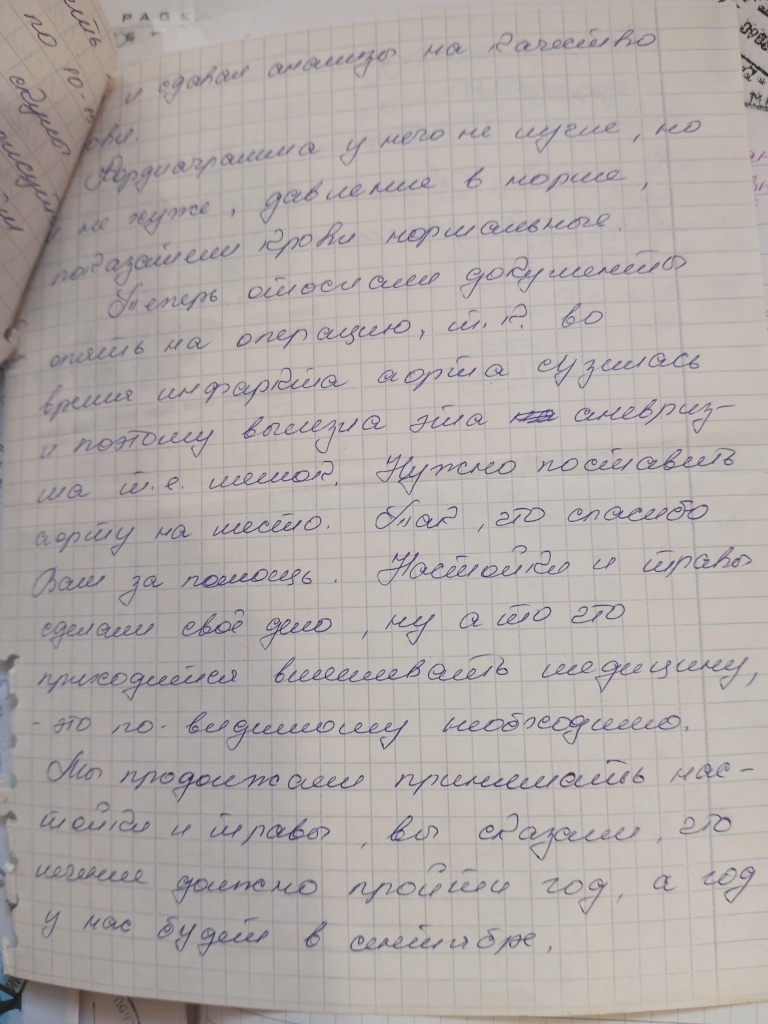 РАСЬ
и сдавал анализы на качество
крови.
Кардиаграмма у него не лучше, но
и не хуже, давление в норме,
показатели крови нормальные.
Теперь относили документы
опять на операцию, т.к. во
время инфаркта аорта сузилась
и поэтому вылезла эта аневриз-
ма т.е. мешок. Нужно поставить
аорту на место. Так, что спасибо
Вам за помощь. Настойки и травы
сделали своё дело, ну а то что
приходится вмешивать медицину,
- это по-видимому необходимо.
Мы продолжаем принимать нас-
тойки и травы, вы сказали, что
лечение должно пройти год, а год
у нас будет в сентябре.